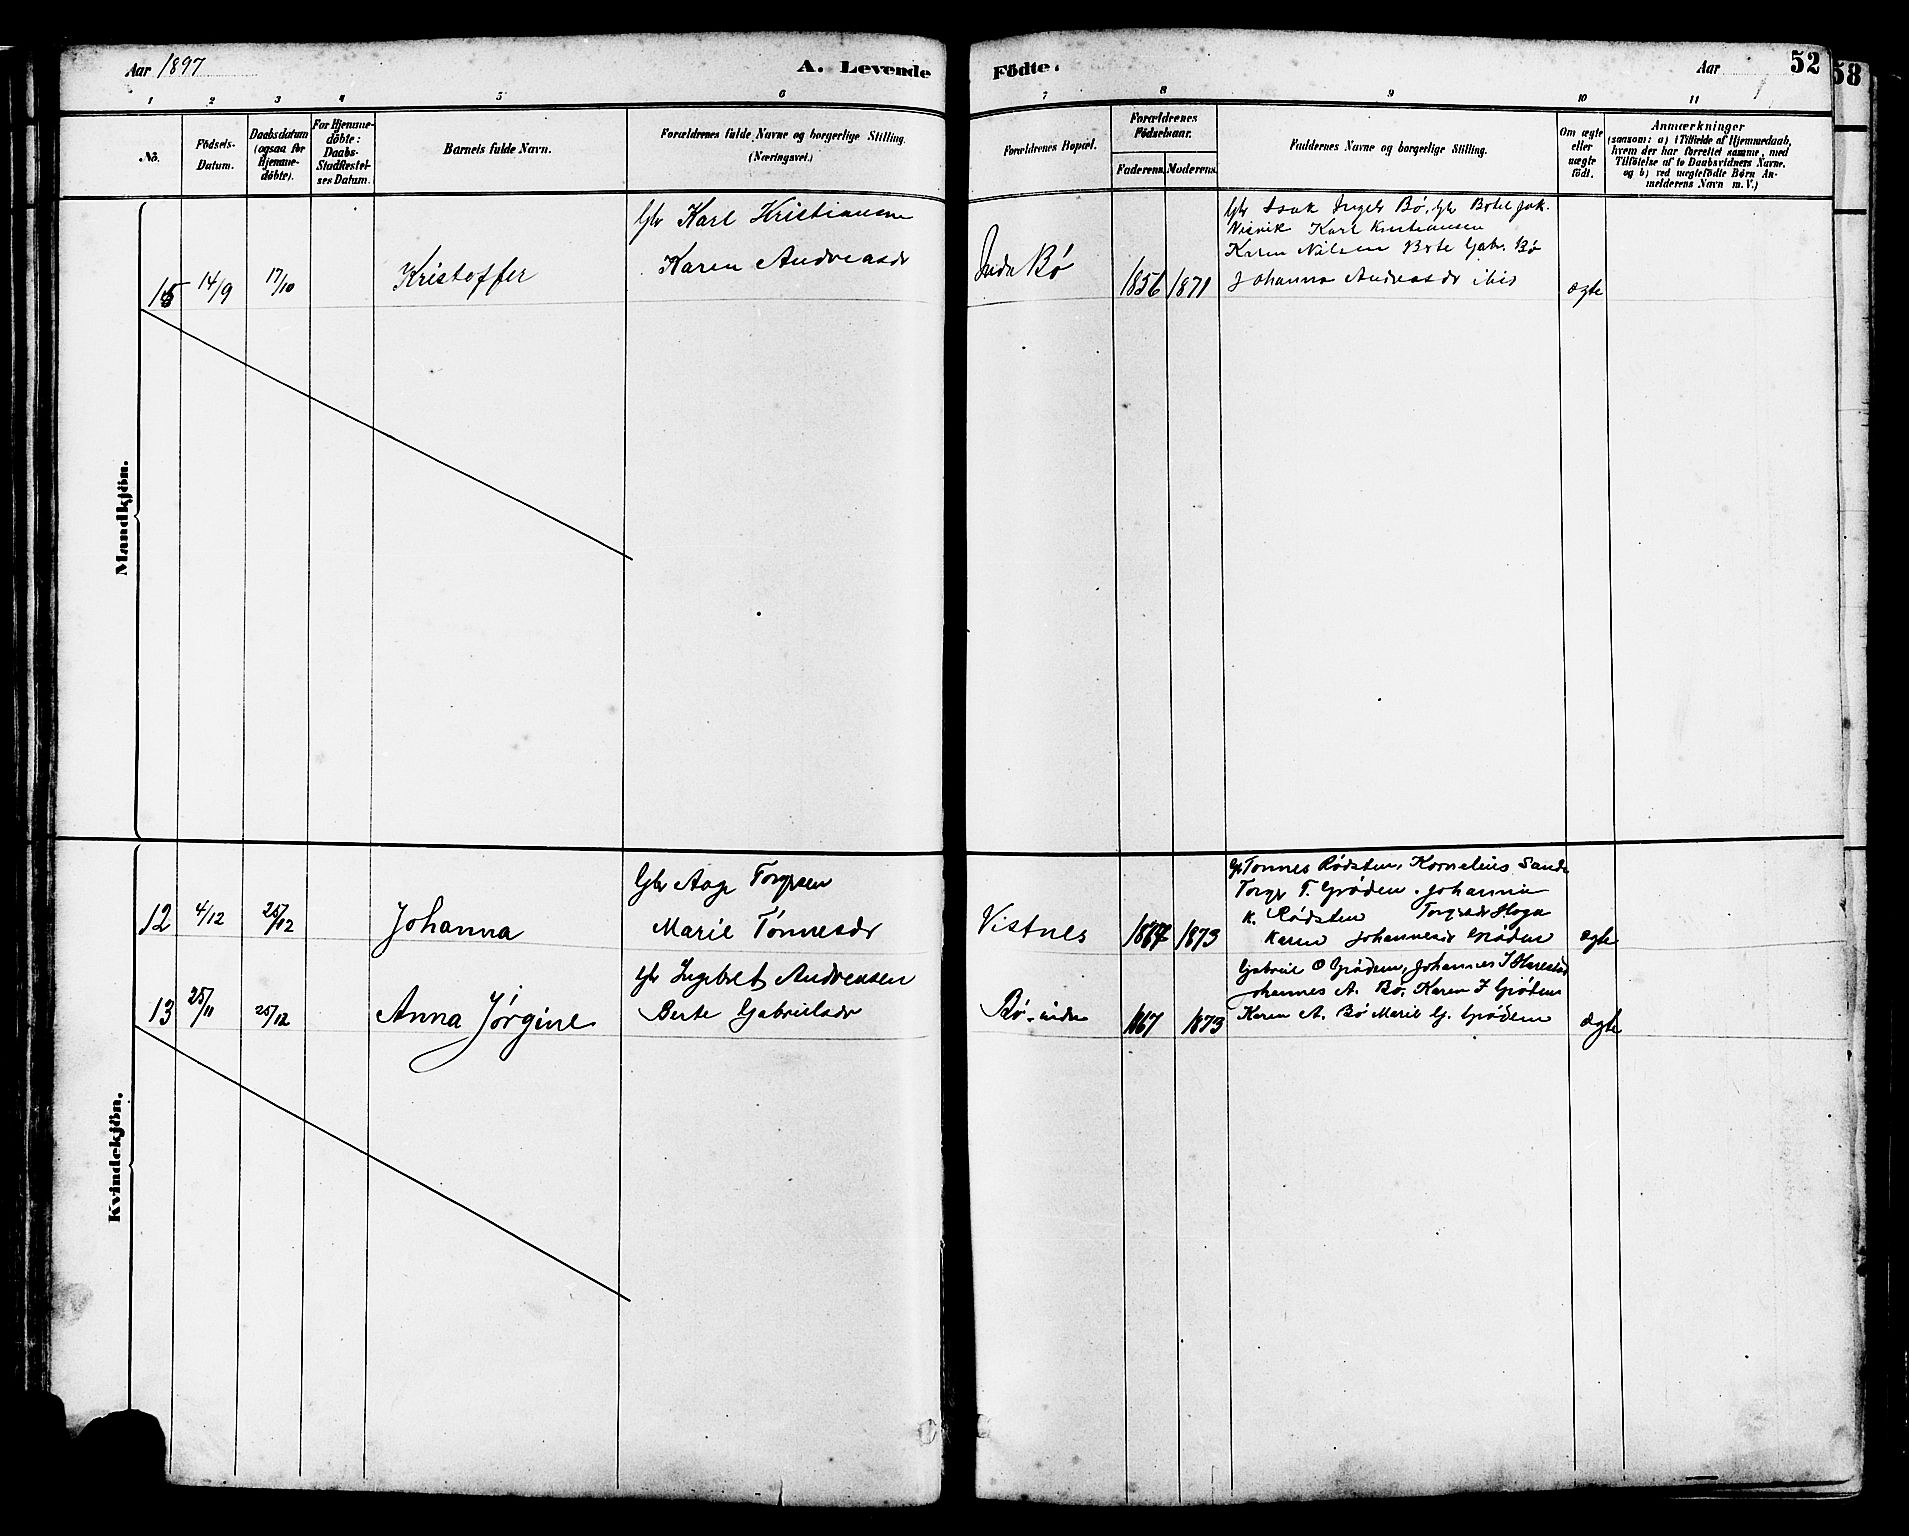 Aar 1897
A. Levende
Födte.
Aar
52
58
1 2 3 4 5 6 7 8 9 10 11
No.
Födsels-
Datum.
Daabsdatum
(ogsaa for
Hjemme-
döbte).
For Hjemme-
döbte:
Daabs-
Stadfæstel-
ses Datum.
Barnets fulde Navn.
Forældrenes fulde Navne og borgerlige Stilling.
(Næringsvei.)
Forældrenes Bopæl.
Forældrenes
Födselsaar.
Faderens. Moderens.
Faddernes Navne og borgerlige Stilling.
Om ægte
eller
uægte
födt.
Anmærkninger
(saasom: a) i Tilfælde af Hjemmedaab,
hvem der har forrettet samme, med
Tilföielse af to Daabsvidners Navne,
og b) ved uægtefödte Börn An-
melderens Navn m. V.)
Mandkjön.
15 14/9 17/10 Kristoffer
Gbr Karl Kristiansen
Karen Andreasdr
Indr Bø
1856 1871
Gbr Isak Ingebr Bø, Gbr Botel Jak.
Visvik Karl Kristiansen
Karen Nilsen Berte Gab. Bø
Johanna Andreasdr ibid
ægte
Kvindekjön.
12 4/12 25/12 Johanna
Gbr Aage Torgersen
Marie Tønnesdr
Vistnes
1867 1873
Tonnes Rødsten, Kornelius Sande
Torgr T. Grøden. Johanna
K. Rødsten Torgrsdr Haga
Karen Johannesdr Grødem
ægte
13 25/11 25/12 Anna Jørgine
Gbr Ingebret Andreasen
Berte Gabrielsdr
Bø-indre
1867 1873
Gabriel O Grødem, Johannes J Harestad
Johannes A. Bø, Karen J Grødem
Karen A. Bø Marie G. Grødem
ægte